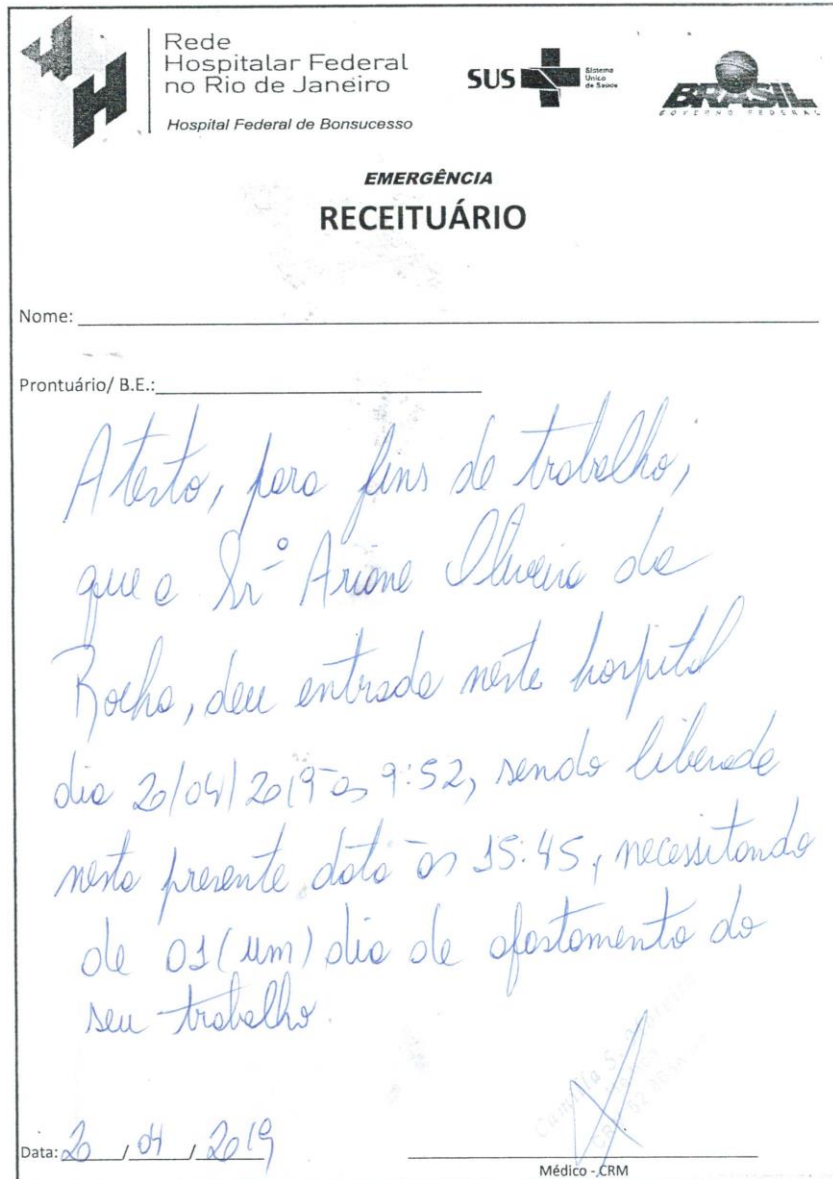 Rede
Hospitalar Federal
no Rio de Janeiro
Hospital Federal de Bonsucesso
SUS
Sistema
Único
de Saúde
BRASIL
GOVERNO FEDERAL
EMERGÊNCIA
RECEITUÁRIO
Nome:
Prontuário/ B.E.:
Atesto, para fins de trabalho,
que a Srª Ariane Oliveira da
Rocha, deu entrada neste hospital
dia 20/04/2019 às 9:52, sendo liberada
nesta presente data às 15:45, necessitando
de 01 (um) dia de afastamento do
seu trabalho.
Data: 20 / 04 / 2019
Médico - CRM